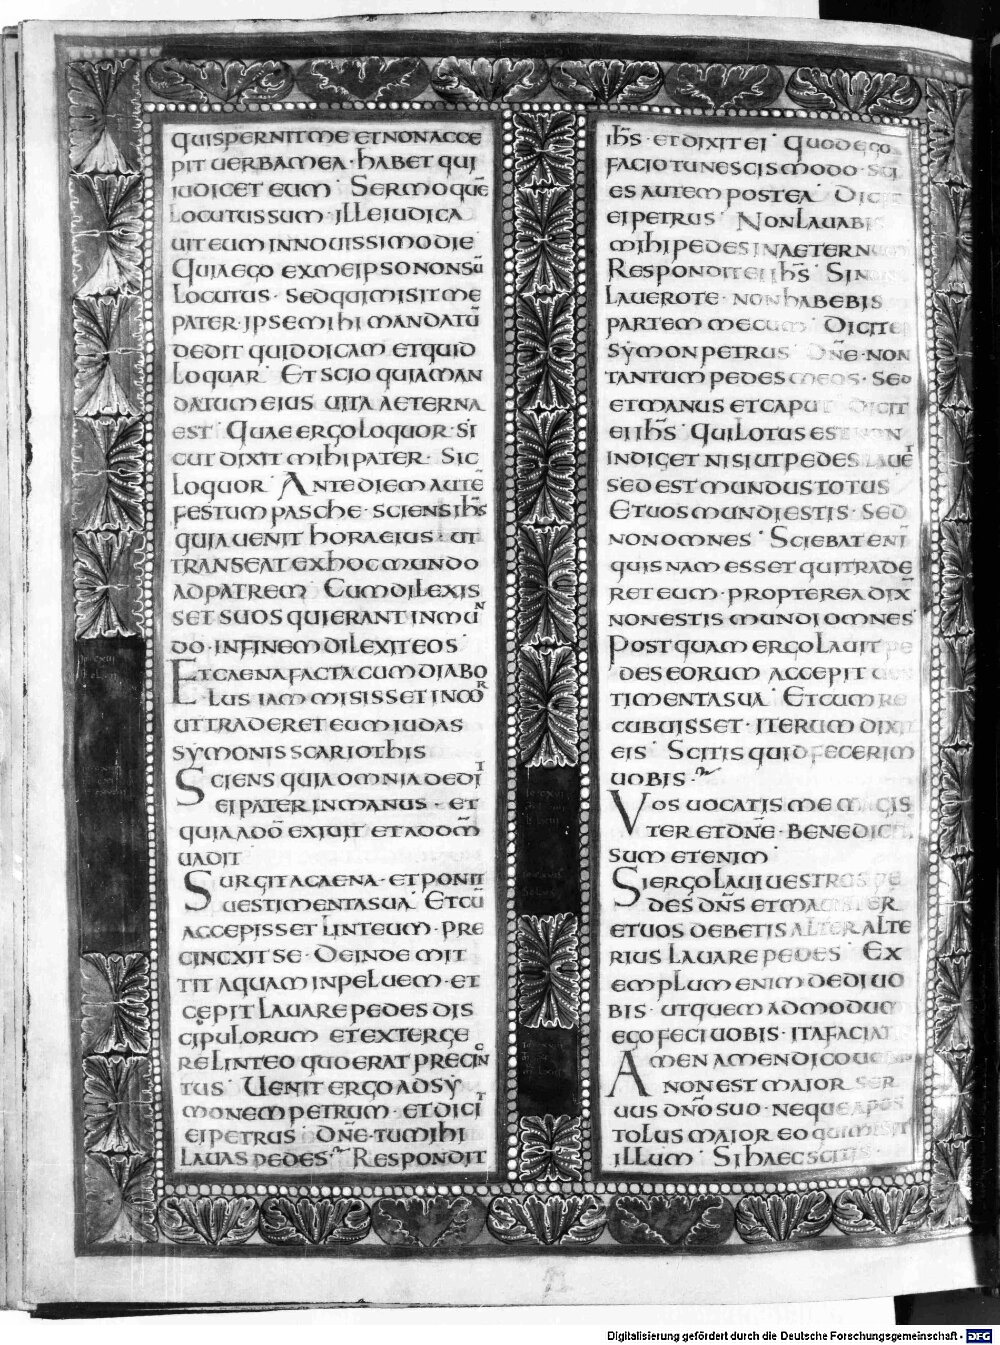 QUISPERNITME ETNONACCE
PIT UERBAMEA· HABET QUI
IUDICET EUM· SERMO QUĒ
LOCUTUSSUM· ILLEIUDICA
UIT EUM INNOUISSIMODIE
QUIAEGO EXMEIPSONONSŪ
LOCUTUS· SEDQUIMISITME
PATER· IPSEMIHI MANDATŪ
DEDIT QUIDDICAM ETQUID
LOQUAR· ET SCIO QUIAMAN
DATUM EIUS UITA AETERNA
EST· QUAE ERGO LOQUOR· SI
CUT DIXIT MIHI PATER· SIC
LOQUOR· ANTE DIEM AUTĒ
FESTUM PASCHE· SCIENS IHS
QUIA UENIT HORA EIUS· UT
TRANSEAT EXHOCMUNDO
AD PATREM· CUM DILEXIS
SET SUOS QUI ERANT IN MUN
DO· INFINEM DILEXIT EOS·
ET CAENA FACTA CUM DIABO
LUS IAM MISISSET IN COR
UT TRADERET EUM IUDAS
SYMONIS SCARIOTHIS
SCIENS QUIA OMNIA DEDI
EI PATER IN MANUS· ET
QUIA A DŌ EXIUIT ET AD DM̄
UADIT
SURGIT A CAENA· ET PONIT
UESTIMENTA SUA· ET CŪ
ACCEPISSET LINTEUM· PRE
CINCXIT SE· DEINDE MIT
TIT AQUAM IN PELUEM· ET
CEPIT LAUARE PEDES DIS
CIPULORUM ET EXTERGE
RE LINTEO QUO ERAT PRECINC
TUS· UENIT ERGO AD SY
MONEM PETRUM· ET DICIT
EI PETRUS· DN̄E· TU MIHI
LAUAS PEDES· RESPONDIT
IHS· ET DIXIT EI· QUOD EGO
FACIO TU NESCIS MODO· SCI
ES AUTEM POSTEA· DICIT
EI PETRUS· NON LAUABIS
MIHI PEDES IN AETERNUM
RESPONDIT EI IHS· SI NON
LAUERO TE· NON HABEBIS
PARTEM MECUM· DICIT EI
SYMON PETRUS· DN̄E· NON
TANTUM PEDES MEOS· SED
ET MANUS ET CAPUT· DICIT
EI IHS· QUI LOTUS EST NON
INDIGET NISI UT PEDES LAUET
SED EST MUNDUS TOTUS·
ET UOS MUNDI ESTIS· SED
NON OMNES· SCIEBAT ENĪ
QUISNAM ESSET QUI TRADE
RET EUM· PROPTEREA DIX̄
NON ESTIS MUNDI OMNES·
POSTQUAM ERGO LAUIT PE
DES EORUM ACCEPIT UES
TIMENTA SUA· ET CUM RE
CUBUISSET· ITERUM DIXIT
EIS· SCITIS QUID FECERIM
UOBIS·
VOS UOCATIS ME MAGIS
TER ET DN̄E· BENE DICITIS
SUM ETENIM·
SI ERGO LAUI UESTROS PE
DES DN̄S ET MAGISTER
ET UOS DEBETIS ALTER ALTE
RIUS LAUARE PEDES· EX
EMPLUM ENIM DEDI UO
BIS· UT QUEMADMODUM
EGO FECI UOBIS· ITA FACIAT
AMEN AMEN DICO UOBIS
NON EST MAIOR SER
UUS DN̄O SUO· NEQUE APOS
TOLUS MAIOR EO QUI MISIT
ILLUM· SI HAEC SCITIS·
Digitalisierung gefördert durch die Deutsche Forschungsgemeinschaft · DFG